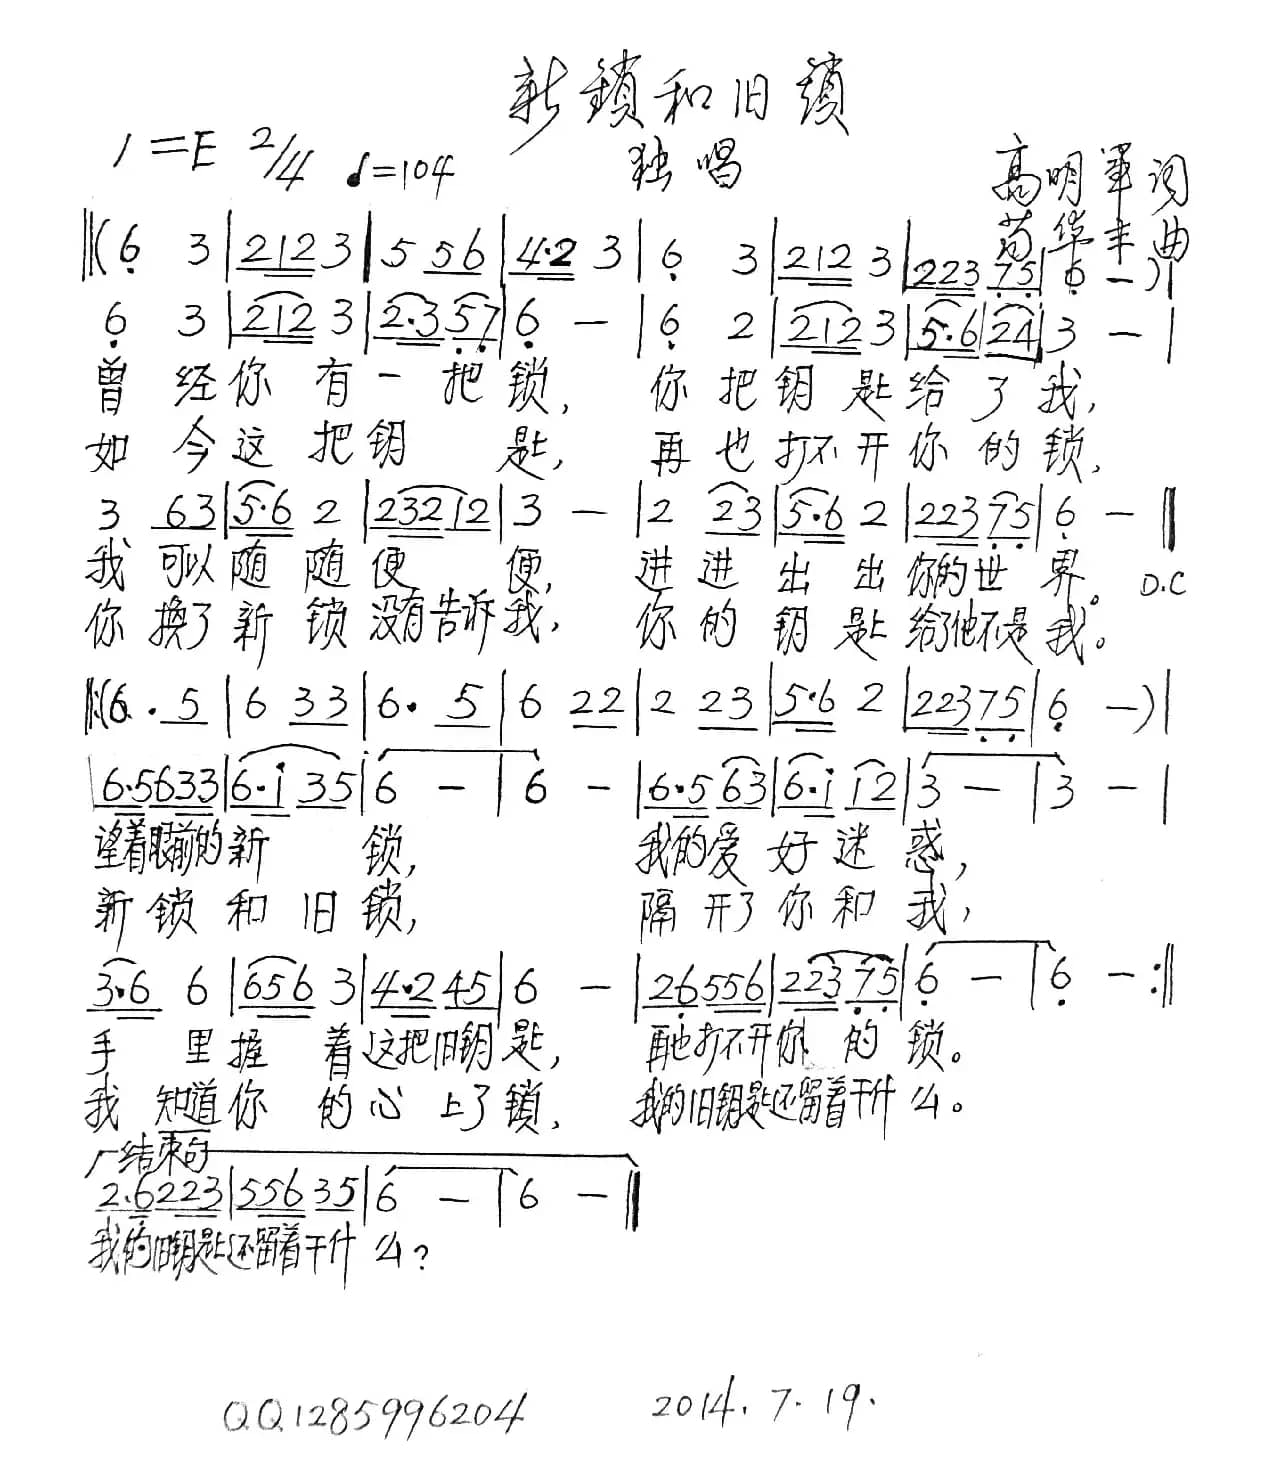 新鎖和旧鎖
1=E 2/4 ♩=104 独唱 高明軍词
苟华丰曲
‖(6 3|212 3|5 56|4·2 3|6 3|212 3|223 75|6 -)|
6 3|212 3|2·3 57|6 -|6 2|212 3|5·6 24|3 -|
曾经你有一把锁,你把钥匙给了我,
如今这把钥匙,再也打不开你的锁,
3 63|5·6 2|232 12|3 -|2 23|5·6 2|223 75|6 -‖
我可以随随便便,进进出出你的世界。D.C
你换了新锁没有告诉我,你的钥匙给了他不是我。
‖:(6· 5|6 33|6· 5|6 22|2 23|5·6 2|223 75|6 -)|
6·5633|6·i 35|6 -|6 -|6·5 63|6·i 12|3 -|3 -|
望着眼前的新锁,我的爱好迷惑,
新锁和旧锁,隔开了你和我,
3·6 6|656 3|4·2 45|6 -|26556|223 75|6 -|6 -:‖
手里握着这把旧钥匙,再也打不开你的锁。
我知道你的心上了锁,我的旧钥匙还留着干什么。
结束句
2·6223|556 35|6 -|6 -‖
我的旧钥匙还留着干什么?
QQ1285996204 2014.7.19.